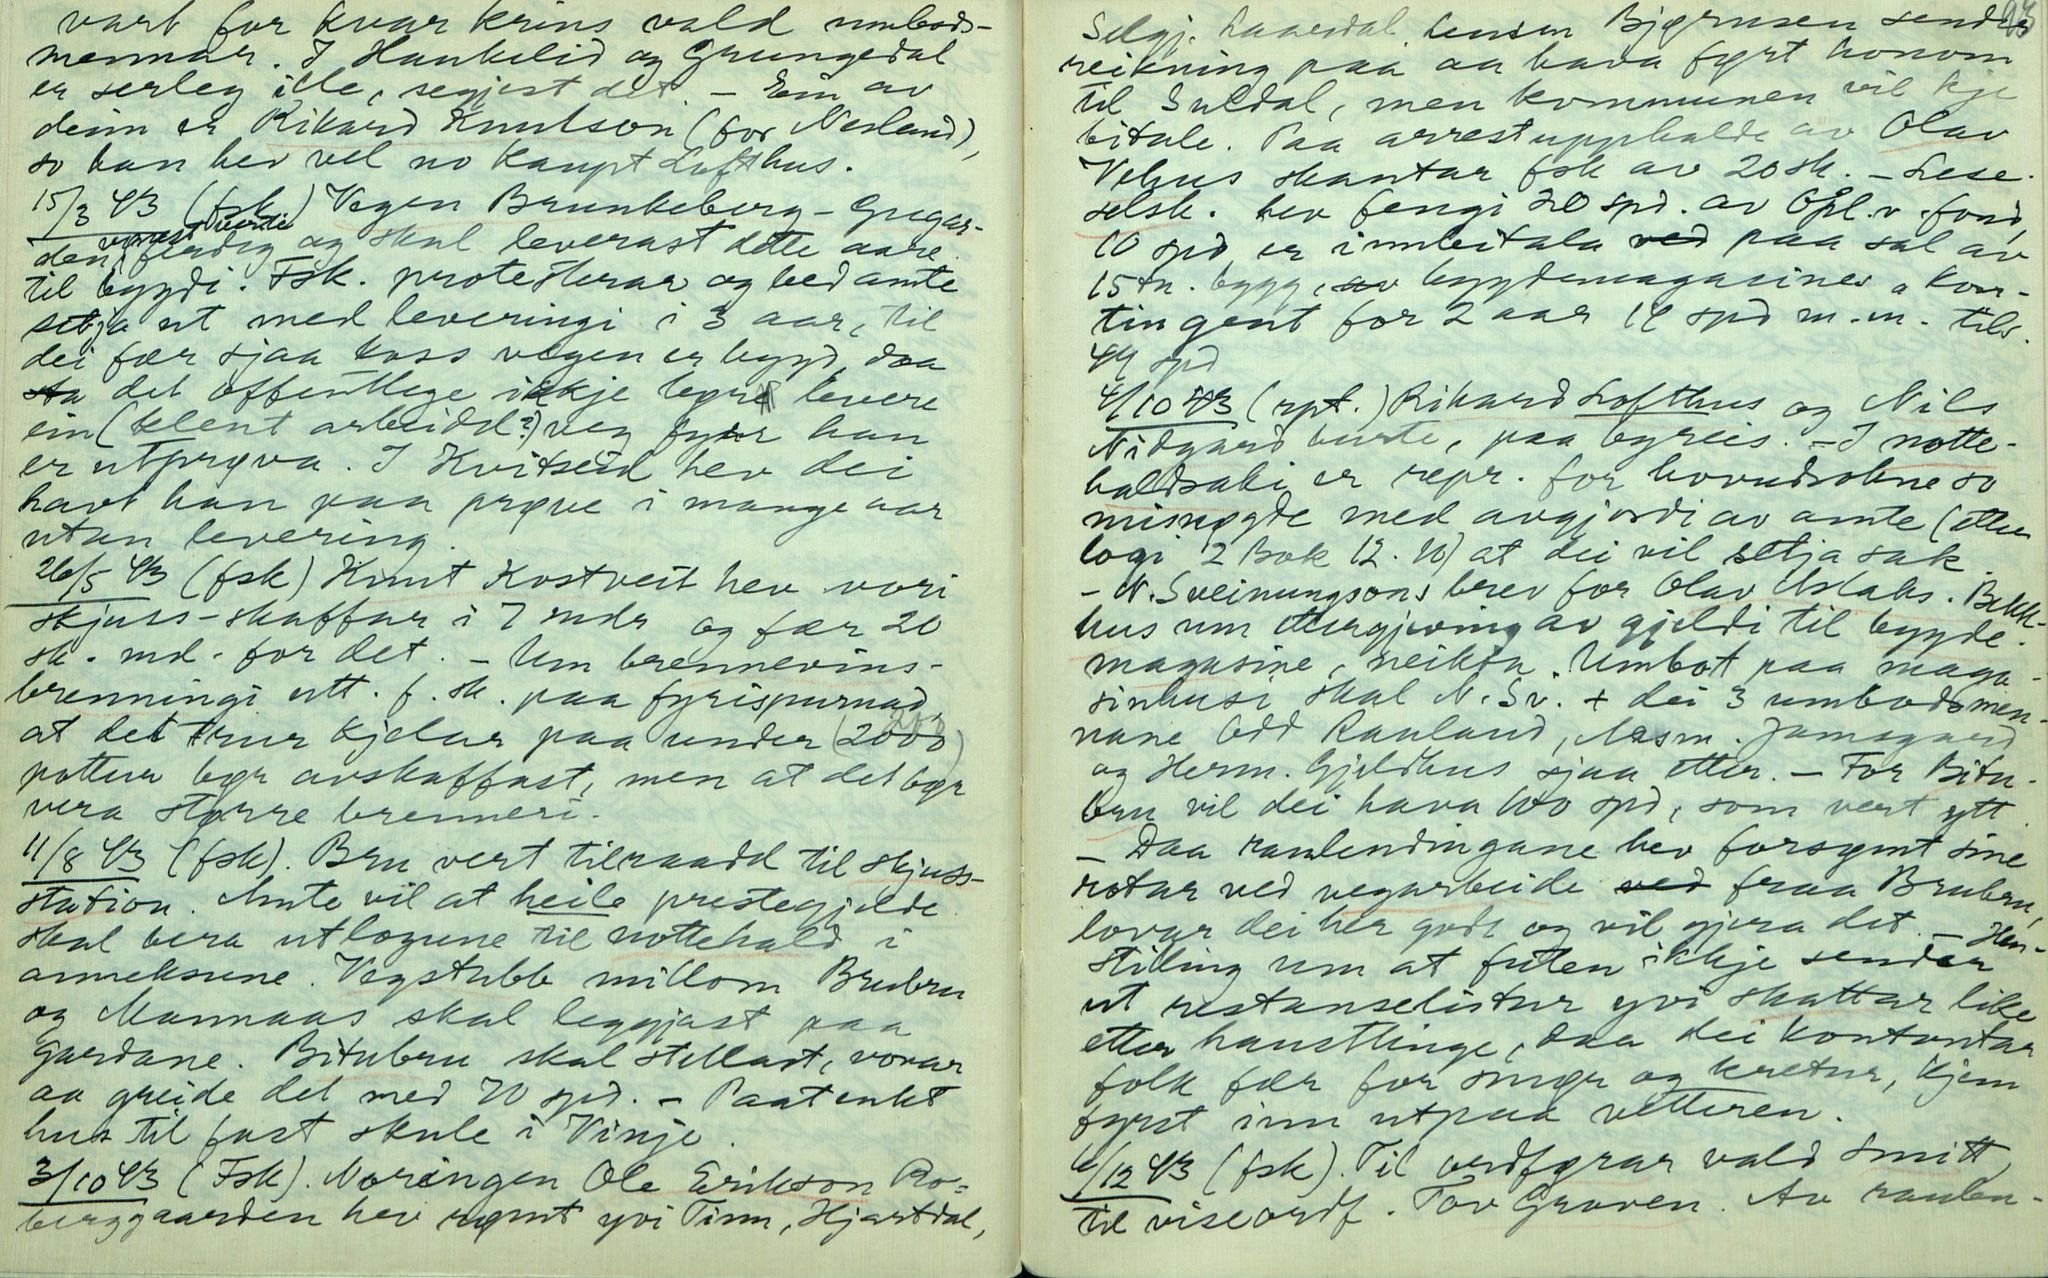 vart for kvar krins vald umbods-
mennar. I Haukelid og Grungedal
er serleg ille, segjest det. - Ein av
deim er Rikard Knutson (for Nesland),
so han hev vel no kaupt Lofthus.
15/3 43 (fsk) Vegen Brunkeberg - Grugar-
den ferdig og skal leverast dette aare
til bygdi. Fsk. protesterar og bed amte
setja ut med leveringi i 3 aar, til
dei fær sjaa koss vegen er bygd, daa
det offentlege ikkje bør levere
ein (kleent arbeidd?) veg fyrr han
er utprøva. I Kvitseid hev dei
havt han paa prøve i mange aar
utan levering.
26/5 43 (fsk) Knut Kostveit hev vori
skjuss-skaffar i 7 mdr og fær 20
sk. md. for det. - Um brennevins-
brenningi utt. f. sk. paa fyrispurnad,
at dei trur kjelar paa under (200)
pottur bør avskaffast, men at det bør
vera større brenneri.
11/8 43 (fsk). Bru vert tilraadd til skjuss-
station. Amte vil at heile prestegjelde
skal bera utlogune til nottehald i
anneksune. Vegstubb millom Brubru
og Mannaas skal leggjast paa
gardane. Bitubru skal stellast, vovar
aa greide det med 70 spd. - Paatenkt
hus til fast skule i Vinje.
3/10 43 (Fsk). Noringen Ole Erikson Ro-
berggaarden hev rømt yvi Tinn, Hjartdal,
Selgj. Laardal. Lensm Bjørnsen sender
reikning paa aa hava fyrt honom
til Suldal, men kommunen vil kje
bitale. Paa arrestupphalde av Olav
Vehus skantar fsk av 20 sk. - Lese-
selsk. hev fengi 20 spd. av Opl.v. fond,
10 spd er innbitala paa sal av
15 tn. bygg, bygdemagasines kon-
tingent for 2 aar 14 spd m.m. tils.
44 spd
4/10 43 (rpt.) Rikard Lofthus og Nils
Nidgard burte, paa byreis. - I notte-
haldsaki er repr. for hovudsokne so
misnøgde med avgjerdi av amte (etter
logi 2 Bok 12. 10) at dei vil setja sak.
- N. Sveinungsons brev for Olav Aslaks. Bekk-
hus um ettergjeving av gjeldi til bygde-
magasine, neikta. Umbot paa maga-
sinhusi skal N. Sv. + dei 3 umbodsmen-
nane Odd Rauland, Aasm. Jamsgaard
og Herm. Gjeldhus sjaa etter. - For Bitu-
bru vil dei hava 100 spd, som vert ytt.
- Daa raulendingane hev forsømt sine
rotar ved vegarbeide fraa Brubru,
lovar dei her godt og vil gjera det. - Hen-
stilling um at futen ikkje sender
ut restanselistur yvi skattar like
etter haustlinge, daa dei kontantar
folk fær for smør og kretur, kjem
fyrst inn utpaa vetteren.
6/12 43 (fsk). Til ordfører vald Smitt,
til viseordf. Tov Groven. Av raulen-